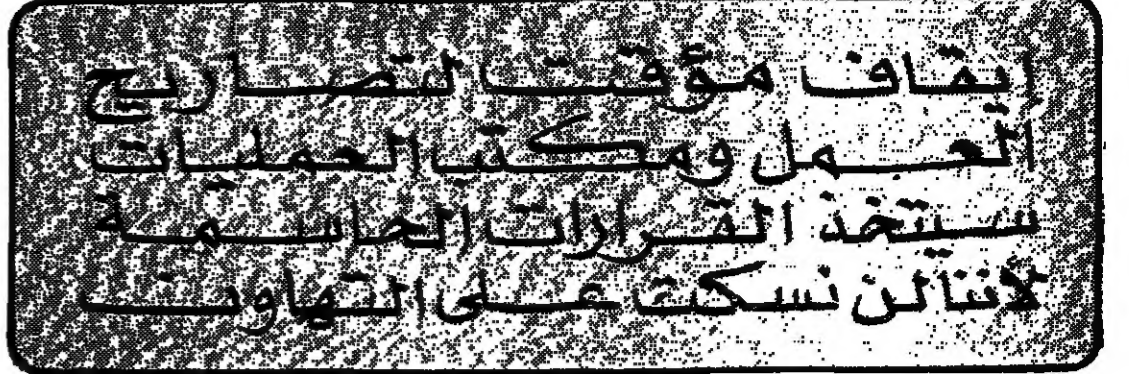 ايقاف مؤقت لتصاريح
العمل ومكتب العمليات
سيتخذ القرارات الحاسمة
لأننا لن نسكت على التهاون